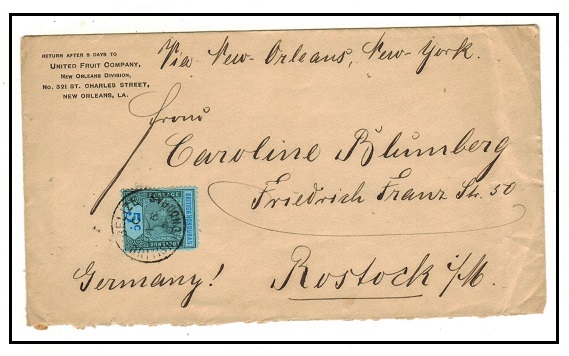 RETURN AFTER 5 DAYS TO
UNITED FRUIT COMPANY,
NEW ORLEANS DIVISION,
No. 321 ST. CHARLES STREET,
NEW ORLEANS, LA.
Via New-Orleans, New-York.
Frau
Caroline Blumberg
Friedrich Franz Str. 50
Germany! Rostock i/M.
BRITISH HONDURAS
POSTAGE
5c
REVENUE
BELIZE